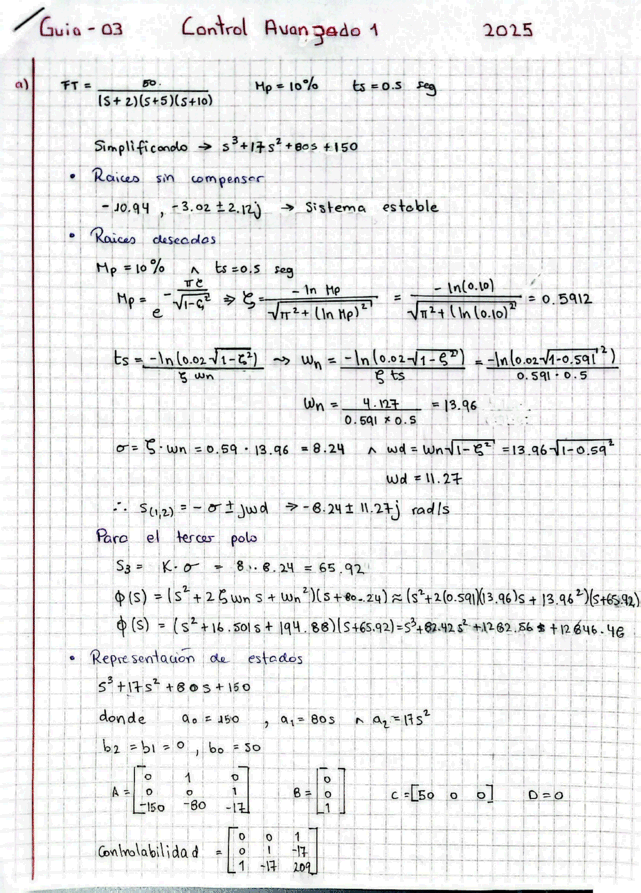 Guia - 03 Control Avanzado 1 2025
a) FT = 50 / (s+2)(s+5)(s+10) Mp = 10% ts = 0.5 seg
Simplificando → s³+17s²+80s+150
• Raices sin compensar
-10.94 , -3.02 ± 2.12j → Sistema estable
• Raices deseadas
Mp = 10% ∧ ts = 0.5 seg
Mp = e^(-πζ/√(1-ζ²)) ⇒ ζ = -ln Mp / √(π²+(ln Mp)²) = -ln(0.10) / √(π²+(ln(0.10)²) = 0.5912
ts = -ln(0.02√(1-ζ²)) / ζ wn ⇝ Wn = -ln(0.02√(1-ζ²)) / ζ ts = -ln(0.02√(1-0.591²)) / 0.591 · 0.5
Wn = 4.127 / 0.591 × 0.5 = 13.96
σ = ζ · wn = 0.59 · 13.96 = 8.24 ∧ wd = Wn√(1-ζ²) = 13.96√(1-0.59²)
wd = 11.27
∴ S(1,2) = -σ ± jwd ⇒ -8.24 ± 11.27j rad/s
Para el tercer polo
S3 = K·σ = 8·8.24 = 65.92
φ(s) = (s²+2ζwn s + wn²)(s+80.24) ≈ (s²+2(0.591)(13.96)s + 13.96²)(s+65.92)
φ(s) = (s²+16.501s+194.88)(s+65.92) = s³+82.42s²+1282.56s+12846.46
• Representación de estados
s³+17s²+80s+150
donde a0 = 150 , a1 = 80s ∧ a2 = 17s²
b2 = b1 = 0 , b0 = 50
A = [0 1 0; 0 0 1; -150 -80 -17] B = [0; 0; 1] C = [50 0 0] D = 0
Controlabilidad = [0 0 1; 0 1 -17; 1 -17 209]